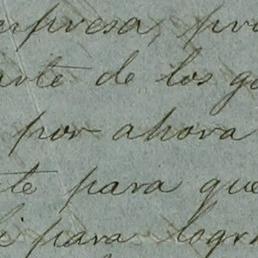 empresa, pro
arte de los ga
por ahora
te para que
i para logra